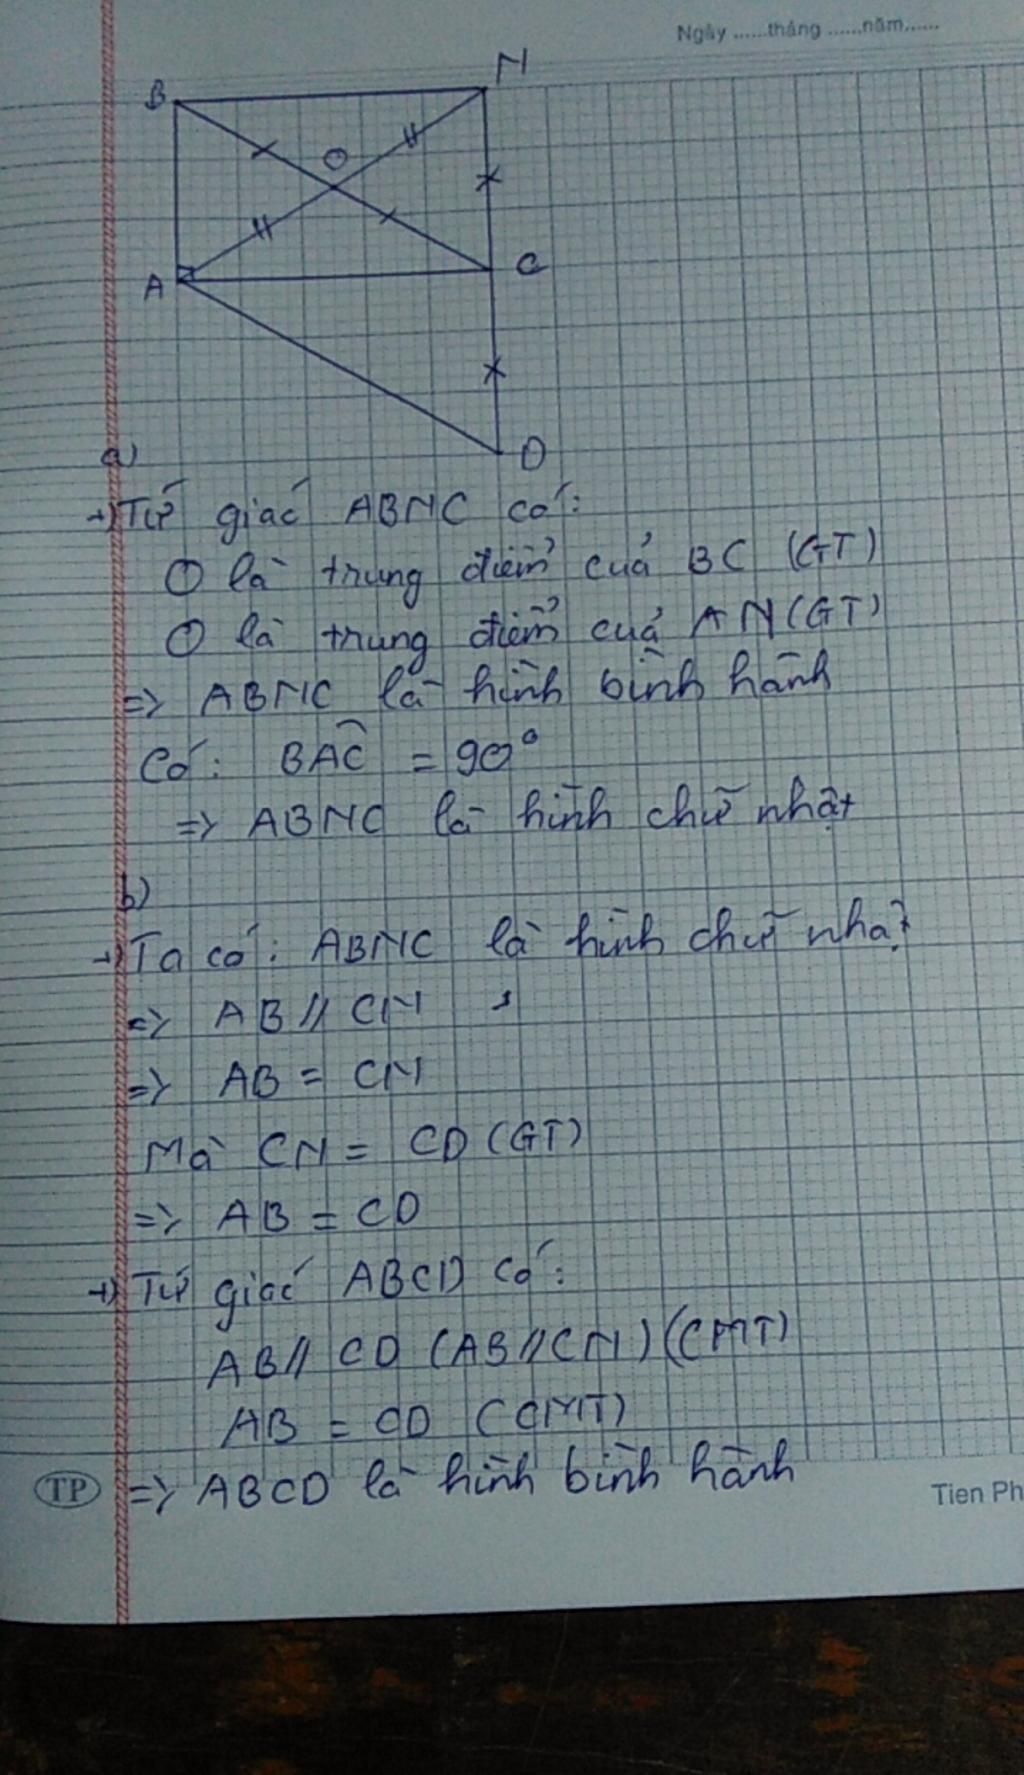 Ngày ......tháng ......năm......
B
N
O
A
C
D
a)
+) Tứ giác ABNC có:
O là trung điểm của BC (GT)
O là trung điểm của AN (GT)
=> ABNC là hình bình hành
Có: BAC = 90°
=> ABNC là hình chữ nhật
b)
+) Ta có: ABNC là hình chữ nhật
=> AB // CN
=> AB = CN
Mà CN = CD (GT)
=> AB = CD
+) Tứ giác ABCD có:
AB // CD (AB // CN) (CMT)
AB = CD (CMT)
=> ABCD là hình bình hành
TP
Tien Ph